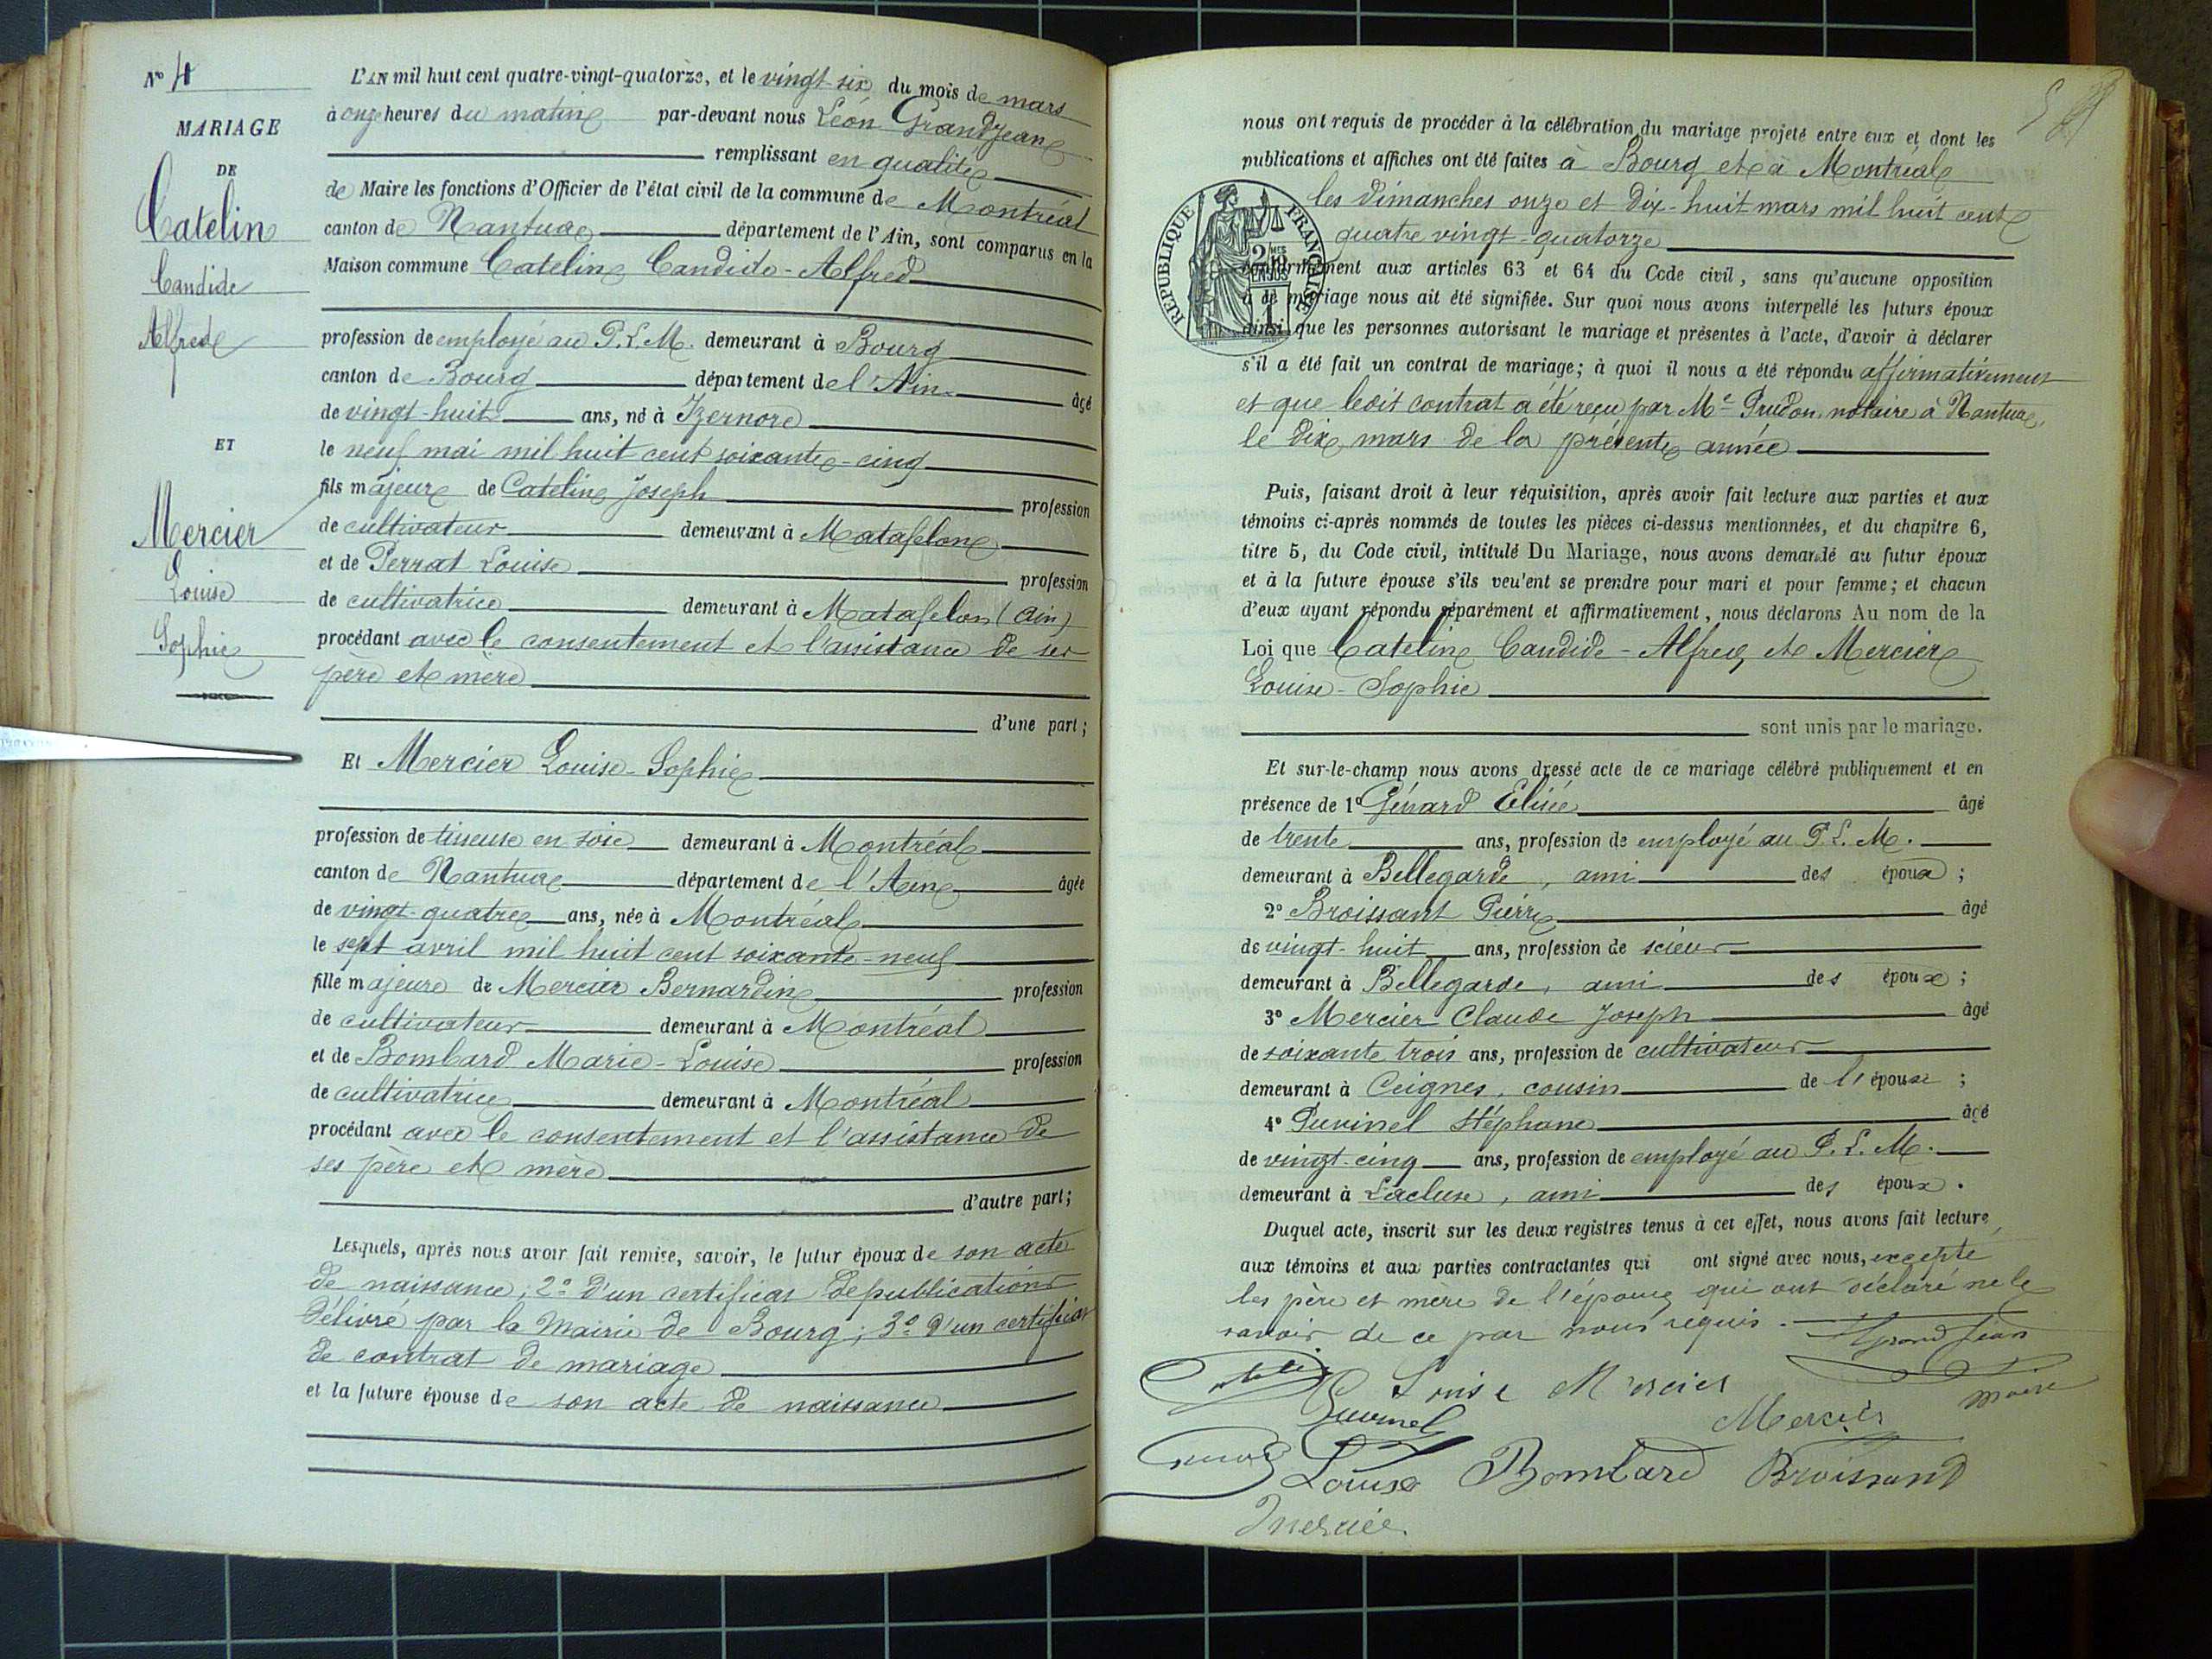 N° 4
MARIAGE
DE
Catelin
Candide
Alfred
ET
Mercier
Louise
Sophie
L'AN mil huit cent quatre-vingt-quatorze, et le vingt-six du mois de mars
à onze heures du matin par-devant nous Léon Grandjean
remplissant en qualité
de Maire les fonctions d'Officier de l'état civil de la commune de Montréal
canton de Nantua département de l'Ain, sont comparus en la
Maison commune Catelin Candide-Alfred
profession de employé au P.L.M. demeurant à Bourg
canton de Bourg département de l'Ain âgé
de vingt-huit ans, né à Izernore
le neuf mai mil huit cent soixante-cinq
fils majeur de Catelin Joseph profession
de cultivateur demeurant à Matafelon
et de Perrat Louise profession
de cultivatrice demeurant à Matafelon (Ain)
procédant avec le consentement et l'assistance de ses
père et mère
d'une part;
Et Mercier Louise-Sophie
profession de tisseuse en soie demeurant à Montréal
canton de Nantua département de l'Ain âgée
de vingt-quatre ans, née à Montréal
le sept avril mil huit cent soixante-neuf
fille majeure de Mercier Bernardin profession
de cultivateur demeurant à Montréal
et de Bombard Marie-Louise profession
de cultivatrice demeurant à Montréal
procédant avec le consentement et l'assistance de
ses père et mère
d'autre part;
Lesquels, après nous avoir fait remise, savoir, le futur époux de son acte
de naissance; 2° d'un certificat de publications
délivré par la Mairie de Bourg; 3° d'un certificat
de contrat de mariage
et la future épouse de son acte de naissance
5
nous ont requis de procéder à la célébration du mariage projeté entre eux et dont les
publications et affiches ont été faites à Bourg et à Montréal
les dimanches onze et dix-huit mars mil huit cent
quatre vingt-quatorze
RÉPUBLIQUE FRANÇAISE
conformément aux articles 63 et 64 du Code civil, sans qu'aucune opposition
à ce mariage nous ait été signifiée. Sur quoi nous avons interpellé les futurs époux
ainsi que les personnes autorisant le mariage et présentes à l'acte, d'avoir à déclarer
s'il a été fait un contrat de mariage; à quoi il nous a été répondu affirmativement
et que ledit contrat a été reçu par Me Prudon, notaire à Nantua,
le dix mars de la présente année
Puis, faisant droit à leur réquisition, après avoir fait lecture aux parties et aux
témoins ci-après nommés de toutes les pièces ci-dessus mentionnées, et du chapitre 6,
titre 5, du Code civil, intitulé Du Mariage, nous avons demandé au futur époux
et à la future épouse s'ils veulent se prendre pour mari et pour femme; et chacun
d'eux ayant répondu séparément et affirmativement, nous déclarons Au nom de la
Loi que Catelin Candide-Alfred et Mercier
Louise-Sophie
sont unis par le mariage.
Et sur-le-champ nous avons dressé acte de ce mariage célébré publiquement et en
présence de 1° Génard Elisée âgé
de trente ans, profession de employé au P.L.M.
demeurant à Bellegarde, ami des époux;
2° Broissant Pierre âgé
de vingt-huit ans, profession de scieur
demeurant à Bellegarde, ami des époux;
3° Mercier Claude Joseph âgé
de soixante trois ans, profession de cultivateur
demeurant à Ceignes, cousin de l'épouse;
4° Puvinel Stéphane âgé
de vingt-cinq ans, profession de employé au P.L.M.
demeurant à Lacluse, ami des époux.
Duquel acte, inscrit sur les deux registres tenus à cet effet, nous avons fait lecture
aux témoins et aux parties contractantes qui ont signé avec nous, excepté
les père et mère de l'époux qui ont déclaré ne le
savoir de ce par nous requis.
Grandjean
Louise Mercier
maire
Puvinel
Mercier
Louise Bombard Broissand
Mercier